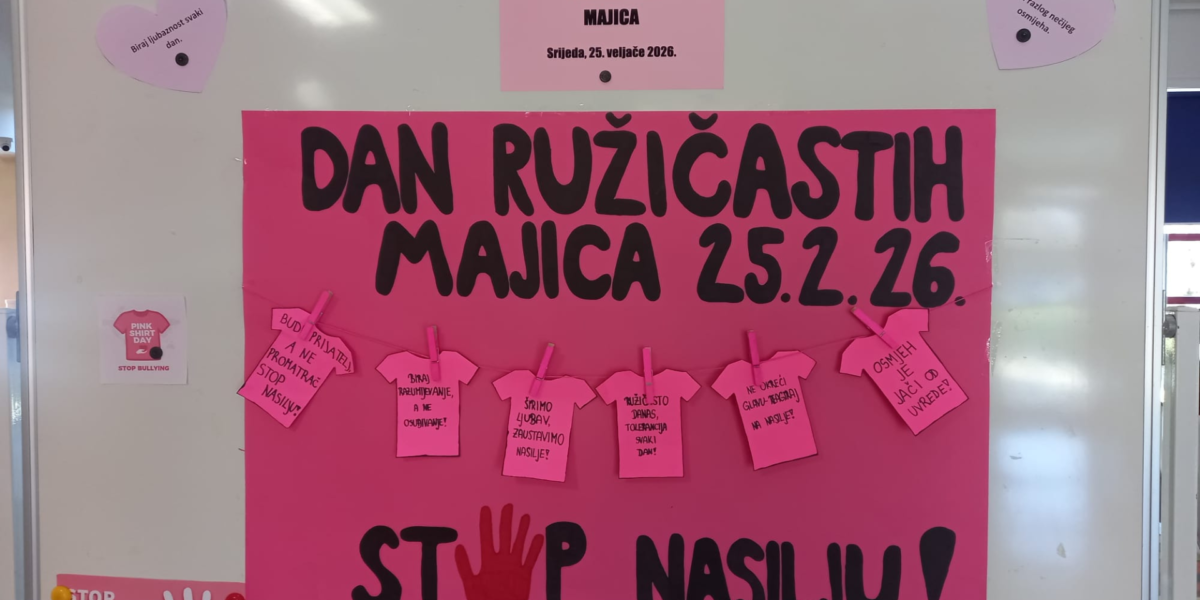 Biraj ljubaznost svaki
dan.
MAJICA
Srijeda, 25. veljače 2026.
razlog nečijeg
osmijeha.
DAN RUŽIČASTIH
MAJICA 25.2.26.
PINK
SHIRT
DAY
STOP BULLYING
BUDI PRIJATELJ
A NE
PROMATRAČ
STOP
NASILJU!
BIRAJ
RAZUMIJEVANJE,
A NE
OSUĐIVANJE!
ŠIRIMO
LJUBAV,
ZAUSTAVIMO
NASILJE!
RUŽIČASTO
DANAS,
TOLERANCIJA
SVAKI
DAN!
NE OKREĆI
GLAVU-REAGIRAJ
NA NASILJE!
OSMIJEH
JE
JAČI OD
UVREDE!
STOP NASILJU!
STOP